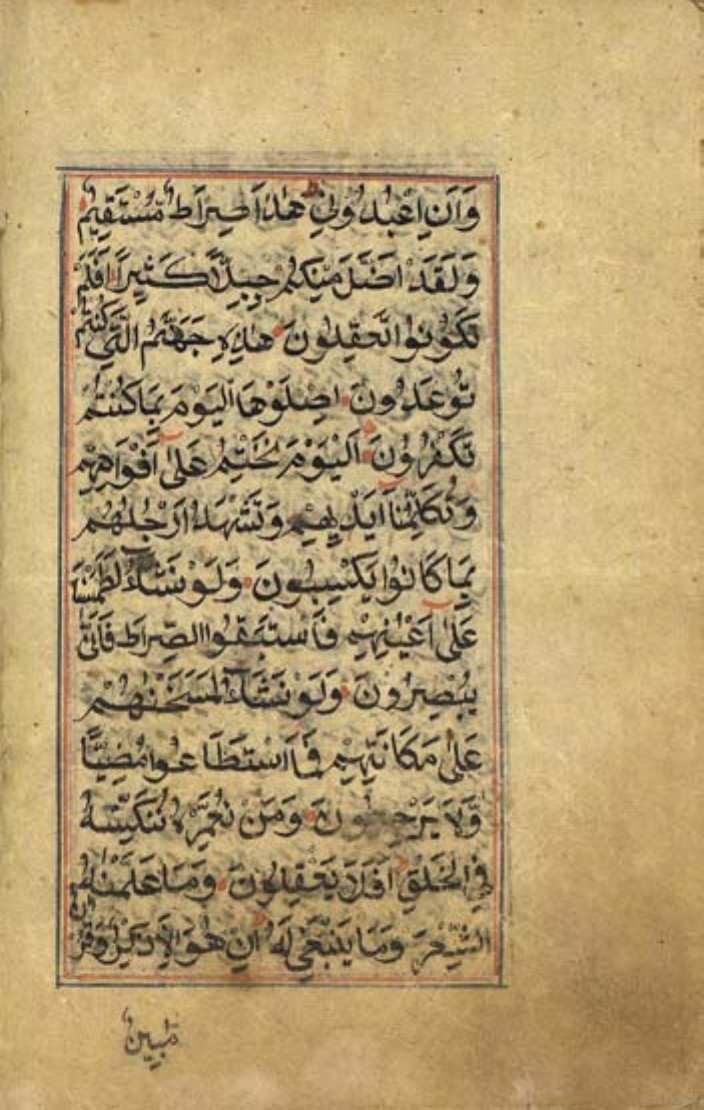 وَاَنِ اعْبُدُونِي هٰذَا صِرَاطٌ مُسْتَقِيمٌ
وَلَقَدْ اَضَلَّ مِنْكُمْ جِبِلًّا كَثِيرًا اَفَلَمْ
تَكُونُوا تَعْقِلُونَ هٰذِهِ جَهَنَّمُ الَّتِي كُنْتُمْ
تُوعَدُونَ اِصْلَوْهَا الْيَوْمَ بِمَا كُنْتُمْ
تَكْفُرُونَ اَلْيَوْمَ نَخْتِمُ عَلٰى اَفْوَاهِهِمْ
وَتُكَلِّمُنَا اَيْدِيهِمْ وَتَشْهَدُ اَرْجُلُهُمْ
بِمَا كَانُوا يَكْسِبُونَ وَلَوْ نَشَاءُ لَطَمَسْنَا
عَلٰى اَعْيُنِهِمْ فَاسْتَبَقُوا الصِّرَاطَ فَاَنّٰى
يُبْصِرُونَ وَلَوْ نَشَاءُ لَمَسَخْنٰهُمْ
عَلٰى مَكَانَتِهِمْ فَمَا اسْتَطَاعُوا مُضِيًّا
وَلَا يَرْجِعُونَ وَمَنْ نُعَمِّرْهُ نُنَكِّسْهُ
فِي الْخَلْقِ اَفَلَا يَعْقِلُونَ وَمَا عَلَّمْنٰهُ
الشِّعْرَ وَمَا يَنْبَغِي لَهُ اِنْ هُوَ اِلَّا ذِكْرٌ وَقُرْاٰنٌ
مُبِينٌ